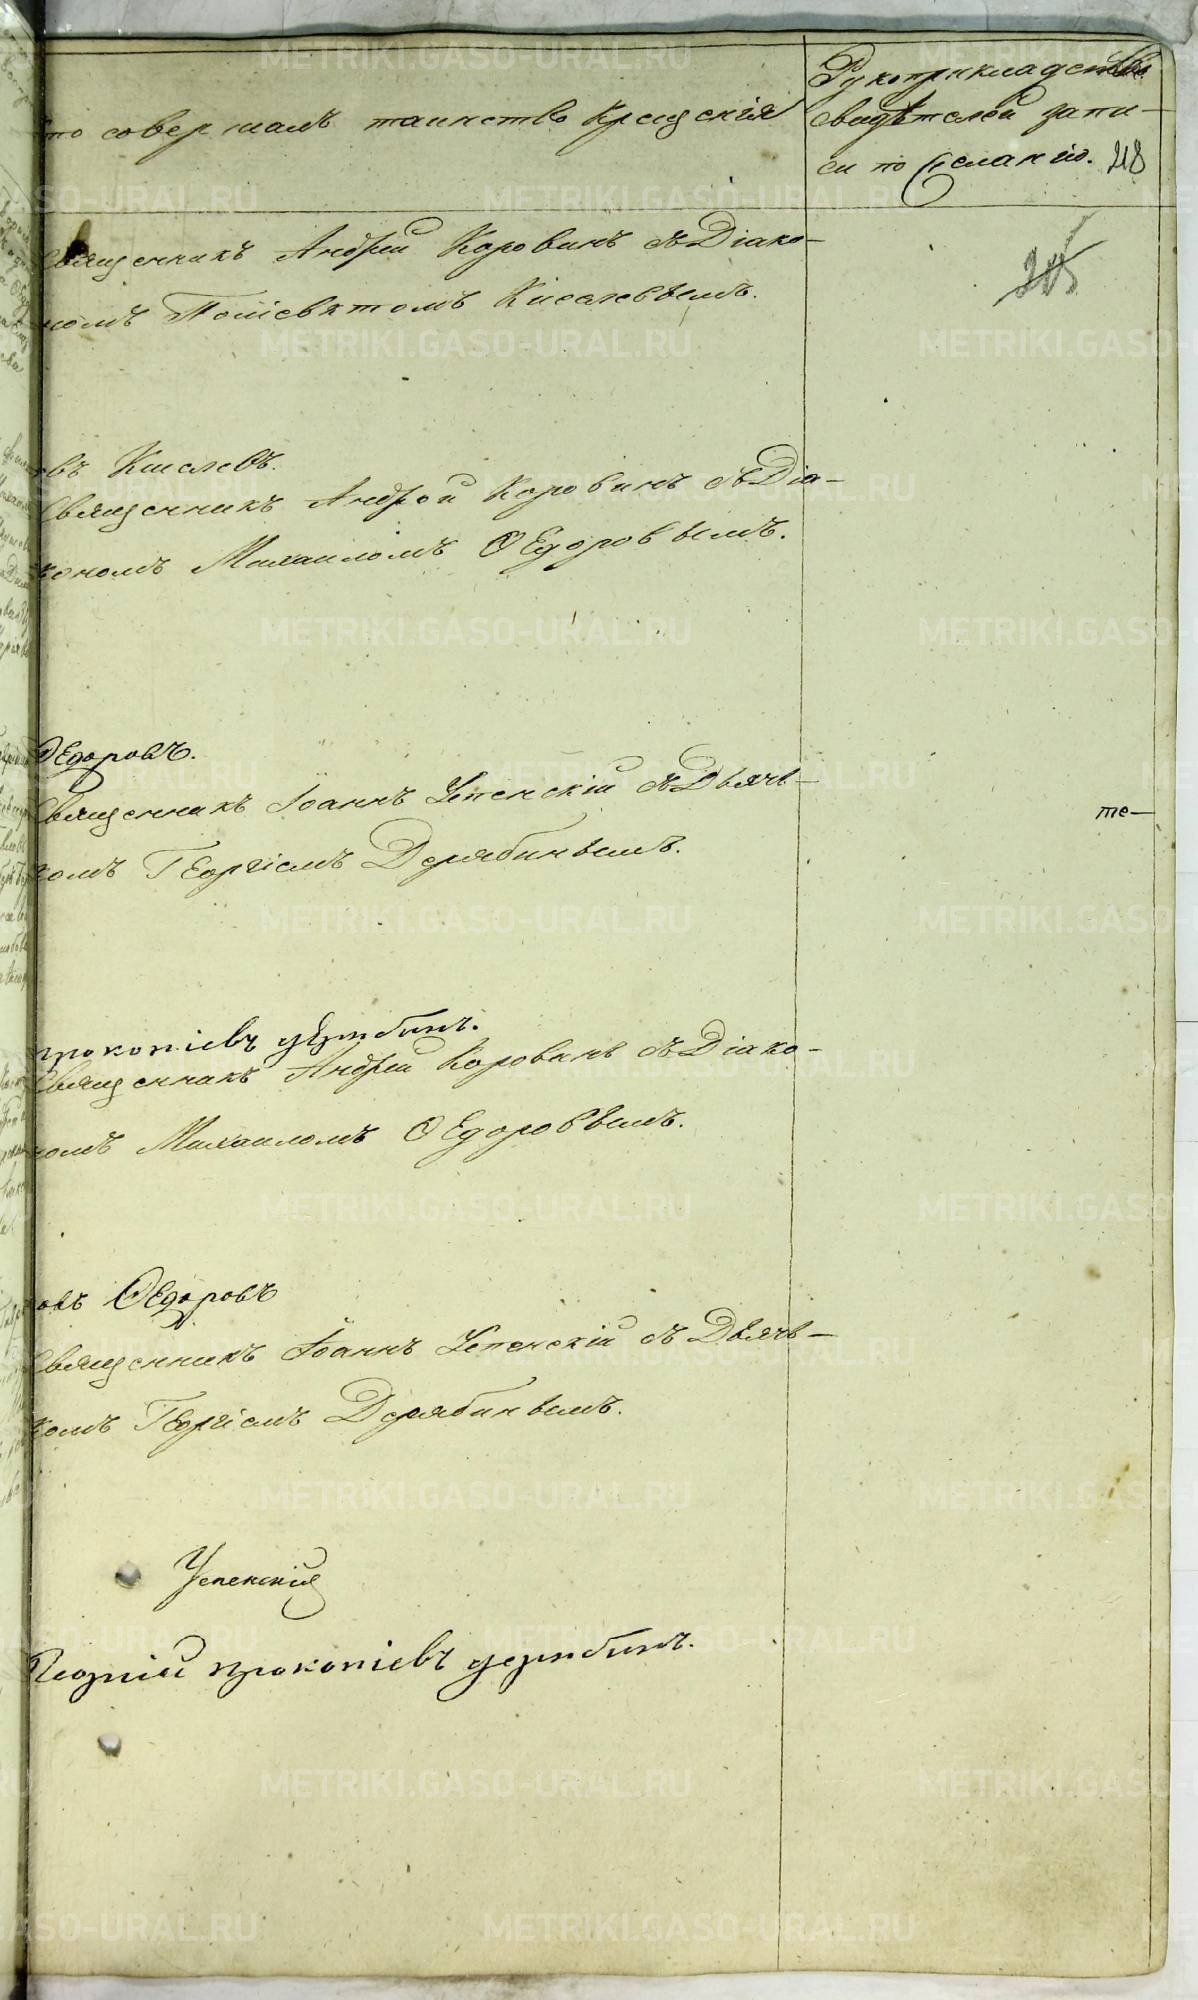 то совершалъ таинство крещенія
Рукоприкладство
свидѣтелей запи-
си по желанію. 218
Священникъ Андрей Коровинъ съ Діако-
номъ Поліевктомъ Киселевымъ.
въ Киселевъ.
Священникъ Андрей Коровинъ съ Діа-
кономъ Михаиломъ Ѳедоровымъ.
Ѳедоровъ.
Священникъ Іоаннъ Успенскій съ Дьяч-
комъ Георгіемъ Дерябинымъ.
те-
прокопіевъ дерябинъ.
Священникъ Андрей Коровинъ съ Діако-
номъ Михаиломъ Ѳедоровымъ.
овъ Ѳедоровъ
Священникъ Іоаннъ Успенскій съ Дьяч-
комъ Георгіемъ Дерябинымъ.
Успенскій
Георгій прокопіевъ дерябинъ.
METRIKI.GASO-URAL.RU